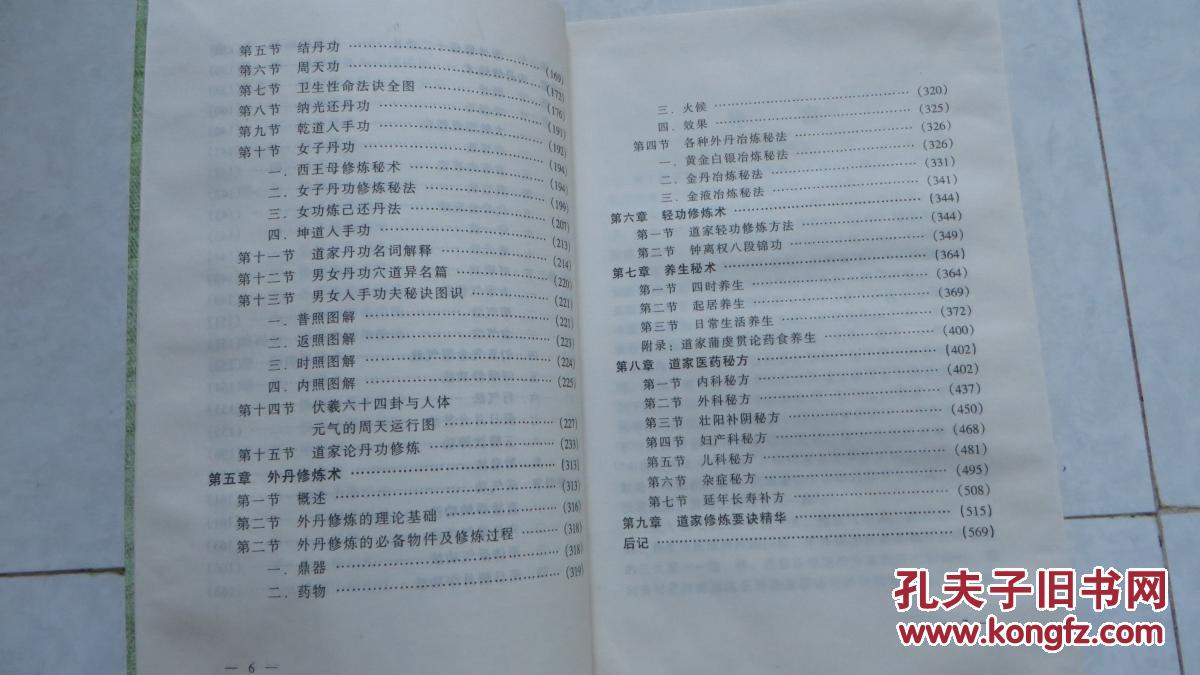 第五节 结丹功 (169)
第六节 周天功 (172)
第七节 卫生性命法诀全图 (176)
第八节 纳光还丹功 (191)
第九节 乾道人手功 (192)
第十节 女子丹功 (194)
一．西王母修炼秘术 (194)
二．女子丹功修炼秘法 (199)
三．女功炼己还丹法 (207)
四．坤道人手功 (213)
第十一节 道家丹功名词解释 (214)
第十二节 男女丹功穴道异名篇 (220)
第十三节 男女人手功夫秘诀图识 (221)
一．普照图解 (221)
二．返照图解 (223)
三．时照图解 (224)
四．内照图解 (225)
第十四节 伏羲六十四卦与人体
元气的周天运行图 (227)
第十五节 道家论丹功修炼 (233)
第五章 外丹修炼术 (313)
第一节 概述 (313)
第二节 外丹修炼的理论基础 (316)
第二节 外丹修炼的必备物件及修炼过程 (318)
一．鼎器 (318)
二．药物 (319)
— 6 —
三．火候 (320)
四．效果 (325)
第四节 各种外丹冶炼秘法 (326)
一．黄金白银冶炼秘法 (326)
二．金丹冶炼秘法 (331)
三．金液冶炼秘法 (341)
第六章 轻功修炼术 (344)
第一节 道家轻功修炼方法 (344)
第二节 钟离权八段锦功 (349)
第七章 养生秘术 (364)
第一节 四时养生 (364)
第二节 起居养生 (369)
第三节 日常生活养生 (372)
附录：道家蒲虔贯论药食养生 (400)
第八章 道家医药秘方 (402)
第一节 内科秘方 (402)
第二节 外科秘方 (437)
第三节 壮阳补阴秘方 (450)
第四节 妇产科秘方 (468)
第五节 儿科秘方 (481)
第六节 杂症秘方 (495)
第七节 延年长寿补方 (508)
第九章 道家修炼要诀精华 (515)
后记 (569)
孔夫子旧书网
www.kongfz.com